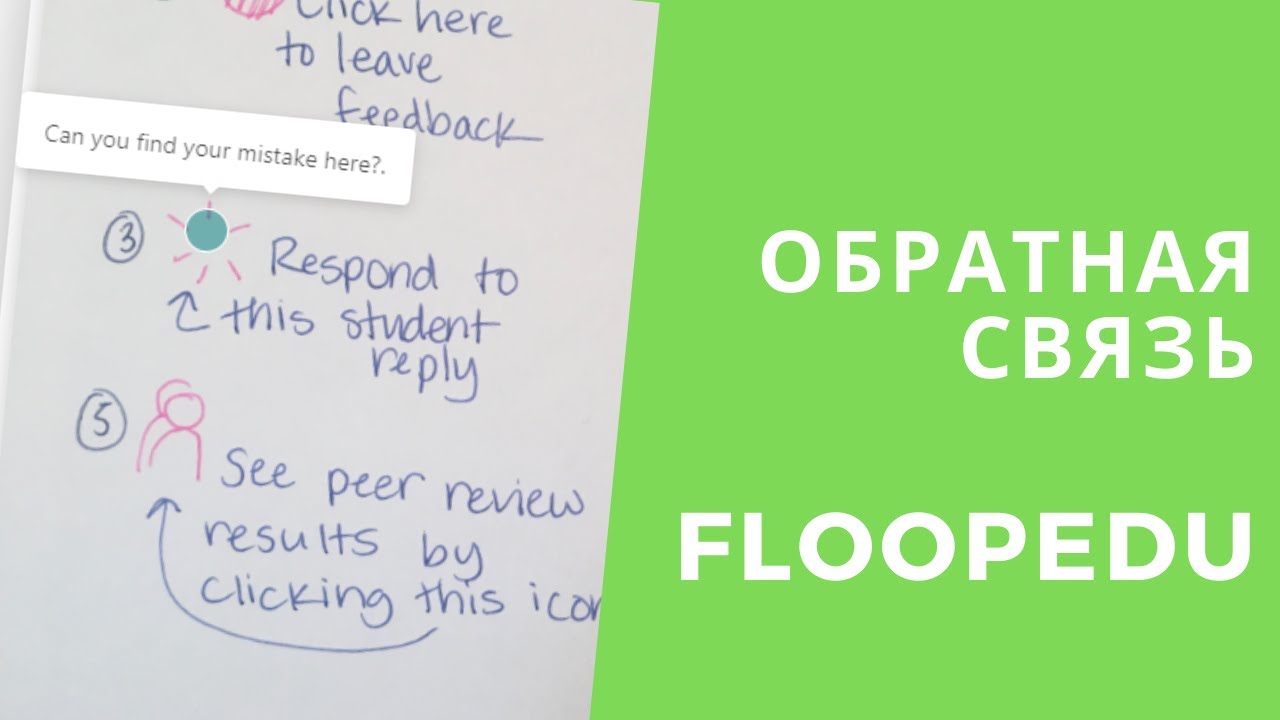 Click here
to leave
feedback
Can you find your mistake here?.
3
Respond to
this student
reply
5
See peer review
results by
clicking this icon
ОБРАТНАЯ
СВЯЗЬ
FLOOPEDU